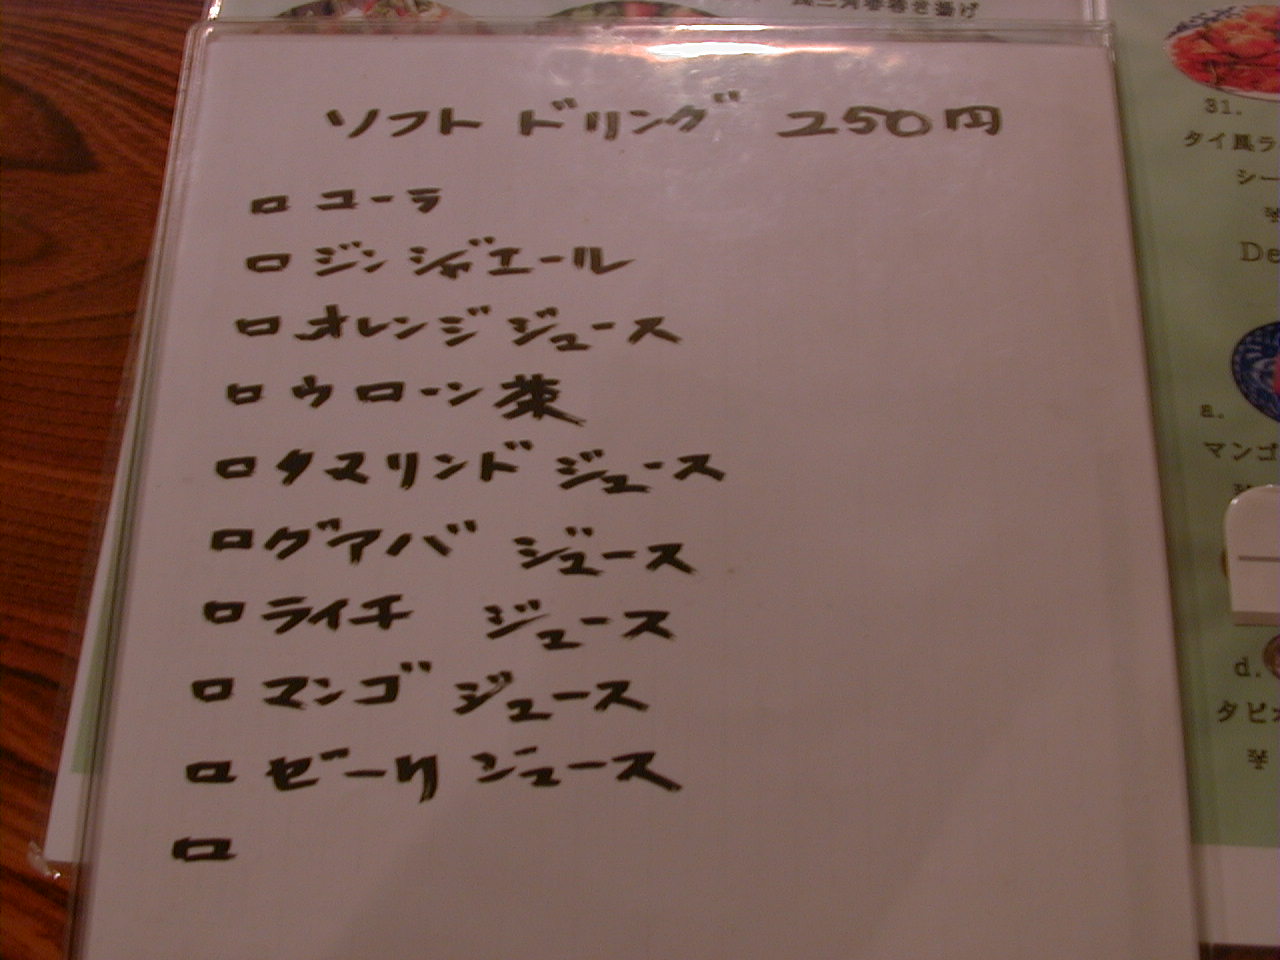 ソフト ドリング 250円
ロ コーラ
ロ ジンジャエール
ロ オレンジ ジュース
ロ ウローン茶
ロ タマリンド ジュース
ロ グアバ ジュース
ロ ライチ ジュース
ロ マンゴ ジュース
ロ ゼーリ ジュース
ロ
31.
タイ風ラ
シー
¥
De
a.
マンゴ
d.
タピオ
¥